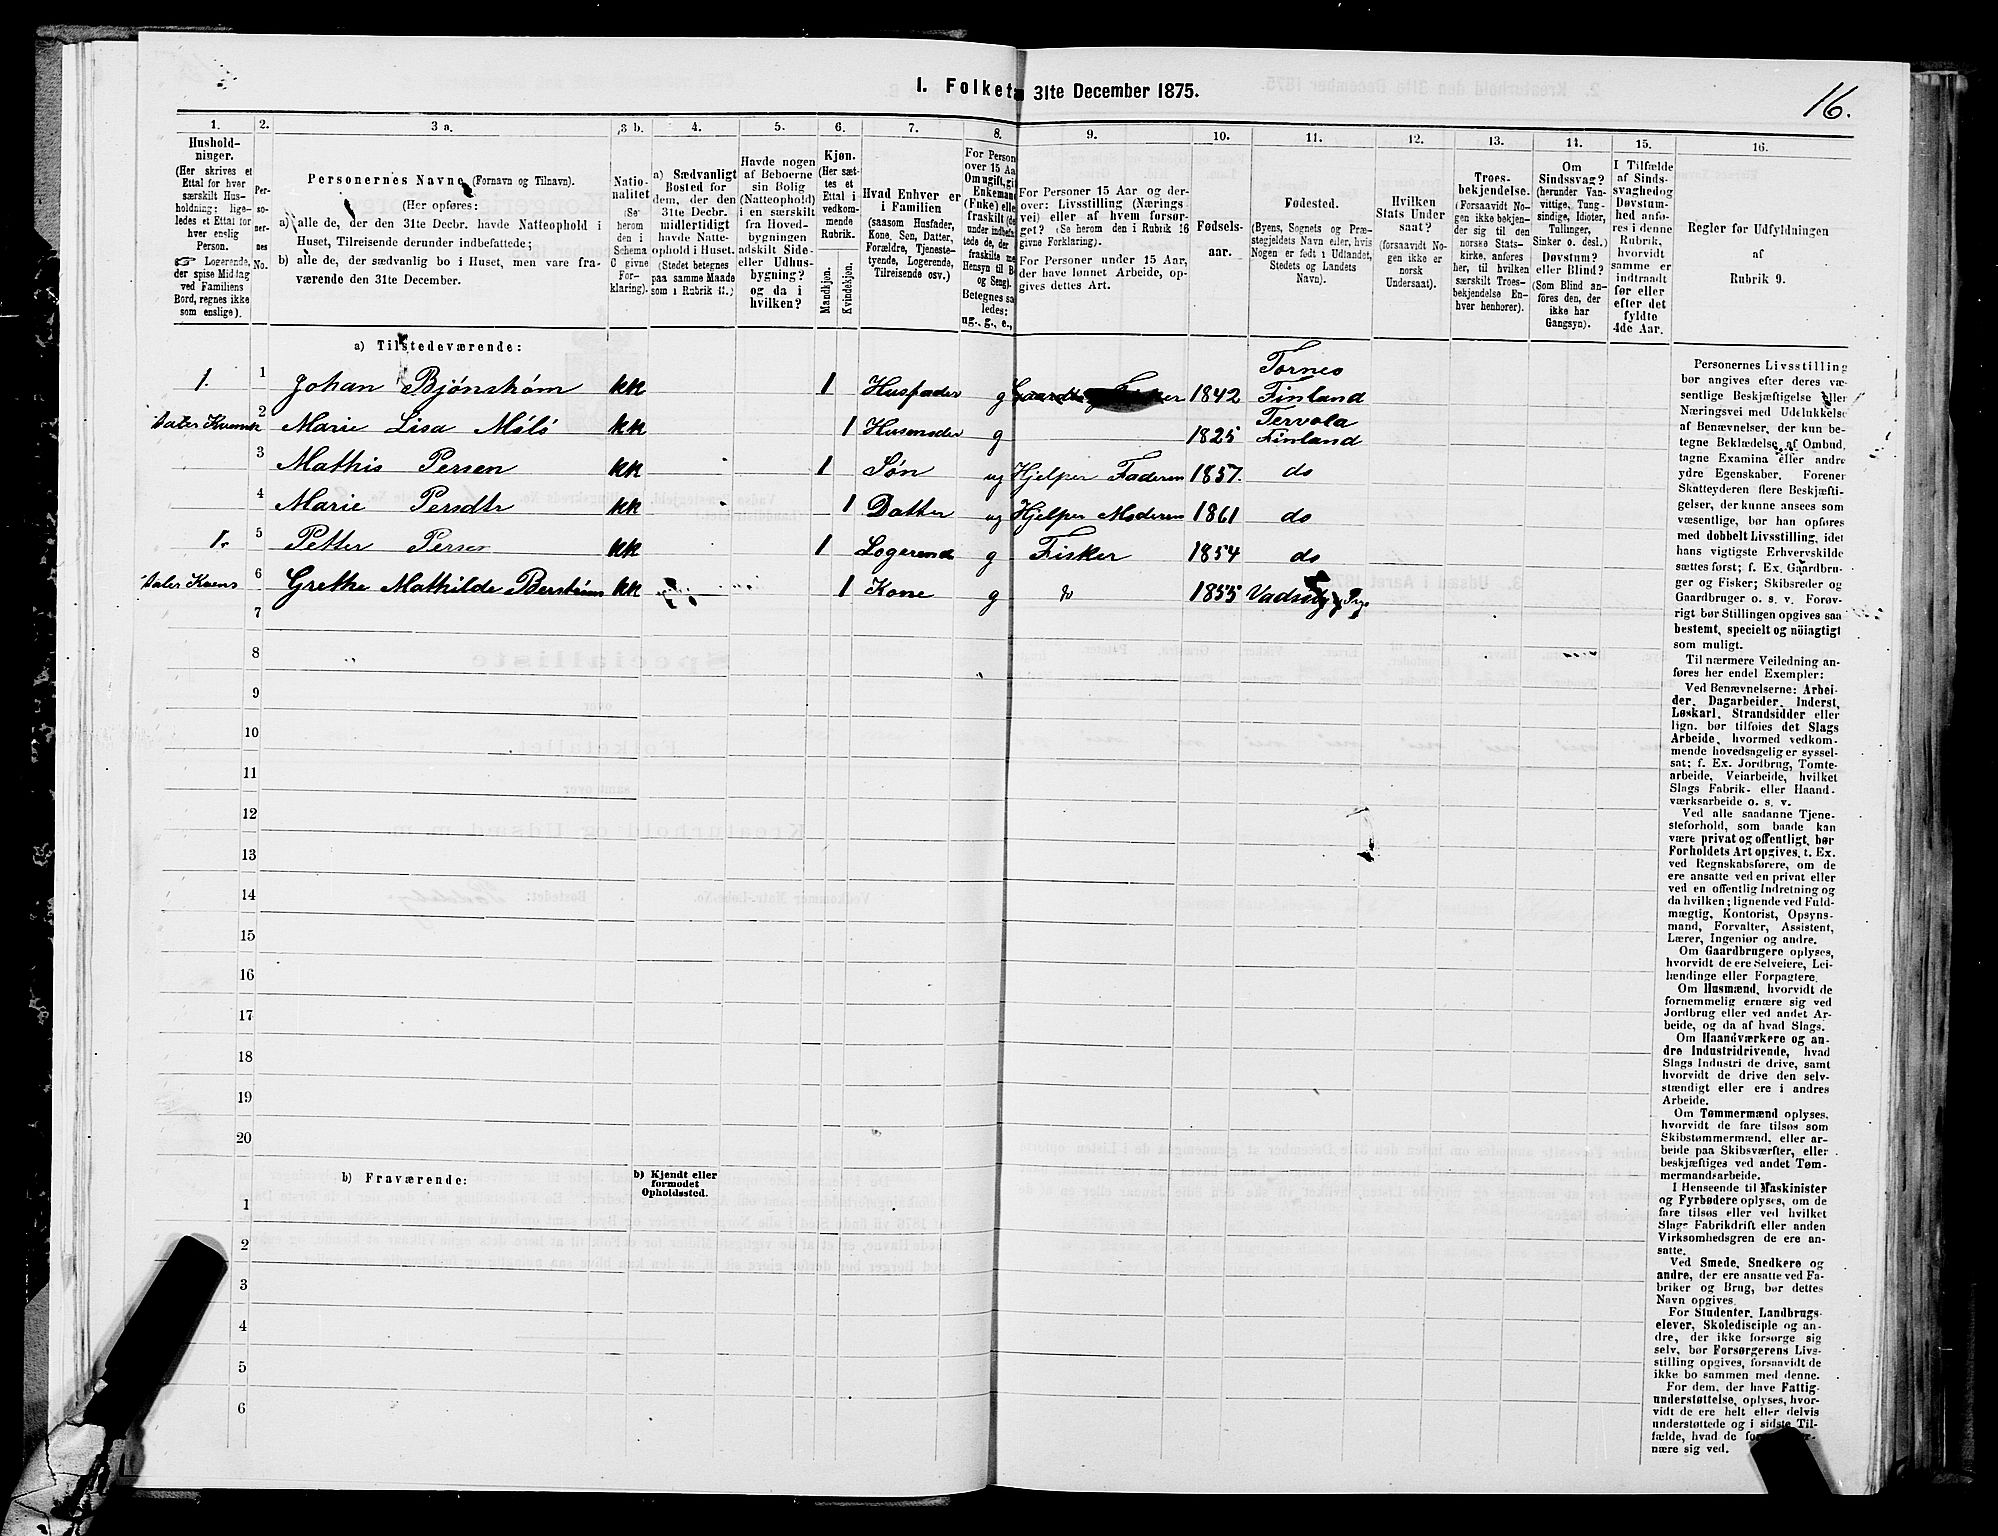 1. Folket 31te December 1875.
16.
1. 2. 3 a. 3 b. 4. 5. 6. 7. 8. 9. 10. 11. 12. 13. 14. 15. 16.
Hushold-
ninger.
(Her skrives et
Ettal for hver
særskilt Hus-
holdning; lige-
ledes et Ettal for
hver enslig
Person.
☞ Logerende,
der spise Middag
ved Familiens
Bord, regnes ikke
som enslige).
Per-
so-
ner-
nes
No.
Personernes Navne (Fornavn og Tilnavn).
(Her opføres:
a) alle de, der den 31te Decbr. havde Natteophold i
Huset, Tilreisende derunder indbefattede;
b) alle de, der sædvanlig bo i Huset, men vare fra-
værende den 31te December.
Natio-
nalitet
(Se
herom
den i
Schema
C givne
For-
klaring).
a) Sædvanligt
Bosted for
dem, der den
31te Decbr.
midlertidigt
havde Natte-
ophold i Huset.
(Stedet betegnes
paa samme Maade
som i Rubrik 11.)
Havde nogen
af Beboerne
sin Bolig
(Natteophold)
i en særskilt
fra Hoved-
bygningen
adskilt Side-
eller Udhus-
bygning?
og da i
hvilken?
Kjøn.
(Her sæt-
tes et
Ettal i
vedkom-
mende
Rubrik.
Mandkjøn.
Kvindekjøn.
Hvad Enhver er
i Familien
(saasom Husfader,
Kone, Søn, Datter,
Forældre, Tjeneste-
tyende, Logerende,
Tilreisende osv.)
For Person
over 15 Aa
Om ugift, gi
Enkemand
(Enke) elle
fraskilt (de
under indbefa
tede de, der
fraskilte me
Hensyn til B
og Seng).
Betegnes sa
ledes:
ug., g., e.,
For Personer 15 Aar og der-
over: Livsstilling (Nærings
vei) eller af hvem forsør-
get? (Se herom den i Rubrik 16
givne Forklaring).
For Personer under 15 Aar,
der have lønnet Arbeide, op-
gives dettes Art.
Fødsels-
aar.
Fødested.
(Byens, Sognets og Præ-
stegjeldets Navn eller, hvis
Nogen er født i Udlandet,
Stedets og Landets
Navn).
Hvilken
Stats Under
saat?
(forsaavidt No-
gen ikke er
norsk
Undersaat).
Troes-
bekjendelse.
(Forsaavidt No-
gen ikke bekjen-
der sig til den
norske Stats-
kirke, anføres
her, til hvilken
særskilt Troes-
bekjendelse En-
hver henhører).
Om
Sindssvag?
(herunder Van-
vittige, Tung-
sindige, Idioter,
Tullinger,
Sinker o. desl.)
Døvstum?
eller Blind?
(Som Blind an-
føres den, der
ikke har
Gangsyn).
I Tilfælde
af Sinds-
svaghedog
Døvstum-
hed anfø-
res i denne
Rubrik,
hvorvidt
samme er
indtraadt
før eller
efter det
fyldte
4de Aar.
Regler for Udfyldningen
af
Rubrik 9.
a) Tilstedeværende:
1. 1 Johan Bjönström kk 1 Husfader g 1842 Torneo Finland
2 Marie Lisa kk 1 Husmoder g 1825 Tervola Finland
3 Mathis Persen kk 1 Søn ug Hjelper Faderen 1857. do
4 Marie Persdtr kk 1 Datter ug Hjelper Moderen 1861 do
1. 5 Petter Persen kk 1 Logerend g Fisker 1854 do
6 Grethe Mathilde kk 1 Kone g 1855
7
8
9
10
11
12
13
14
15
16
17
18
19
20
b) Fraværende:
b) Kjendt eller
formodet
Opholdssted.
1
2
3
4
5
6
Personernes Livsstilling
bør angives efter deres væ-
sentlige Beskjæftigelse eller
Næringsvei med Udelukkelse
af Benævnelser, der kun be-
tegne Beklædelse af Ombud,
tagne Examina eller andre
ydre Egenskaber. Forener
Skatteyderen flere Beskjæfti-
gelser, der kunne ansees som
væsentlige, bør han opføres
med dobbelt Livsstilling, idet
hans vigtigste Erhvervskilde
sættes først; f. Ex. Gaardbru-
ger og Fisker; Skibsreder og
Gaardbruger o. s. v. Forøv-
rigt bør Stillingen opgives saa
bestemt, specielt og nöiagtigt
som muligt.
Til nærmere Veiledning an-
føres her endel Exempler:
Ved Benævnelserne: Arbei-
der, Dagarbeider, Inderst,
Løskarl, Strandsidder eller
lign. bør tilføies det Slags
Arbeide, hvormed vedkom-
mende hovedsagelig er syssel-
sat; f. Ex. Jordbrug, Tomte-
arbeide, Veiarbeide, hvilket
Slags Fabrik- eller Haand-
værksarbeide o. s. v.
Ved alle saadanne Tjene-
steforhold, som baade kan
være privat og offentligt, bør
Forholdets Art opgives, t. Ex.
ved Regnskabsførere, om de
ere ansatte ved en privat eller
ved en offentlig Indretning og
da hvilken; lignende ved Fuld-
mægtig, Kontorist, Opsyns-
mand, Forvalter, Assistent,
Lærer, Ingeniør og andre.
Om Gaardbrugere oplyses,
hvorvidt de ere Selveiere, Lei-
lændinge eller Forpagtere.
Om Husmænd, hvorvidt de
fornemmelig ernære sig ved
Jordbrug eller ved andet Ar-
beide, og da af hvad Slags.
Om Haandværkere og an-
dre Industridrivende, hvad
Slags Industri de drive, samt
hvorvidt de drive den selv-
stændigt eller ere i andres
Arbeide.
Om Tømmermænd oplyses,
hvorvidt de fare tilsøs som
Skibstømmermænd, eller ar-
beide paa Skibsværfter, eller
beskjæftiges ved andet Tøm-
mermandsarbeide.
I Henseende til Maskinister
og Fyrbødere oplyses, om de
fare tilsøs eller ved hvilket
Slags Fabrikdrift eller anden
Virksomhedsgren de ere an-
satte.
Ved Smede, Snedkere og
andre, der ere ansatte ved Fa-
briker og Brug, bør dettes
Navn opgives.
For Studenter, Landbrugs-
elever, Skoledisciple og an-
dre, der ikke forsørge sig
selv, bør Forsørgerens Livs-
stilling opgives, forsaavidt de
ikke bo sammen med denne.
For dem, der have Fattig-
understøttelse, oplyses, hvor-
vidt de ere helt eller delvis
understøttede og i sidste Til-
fælde, hvad de
nære sig ved.